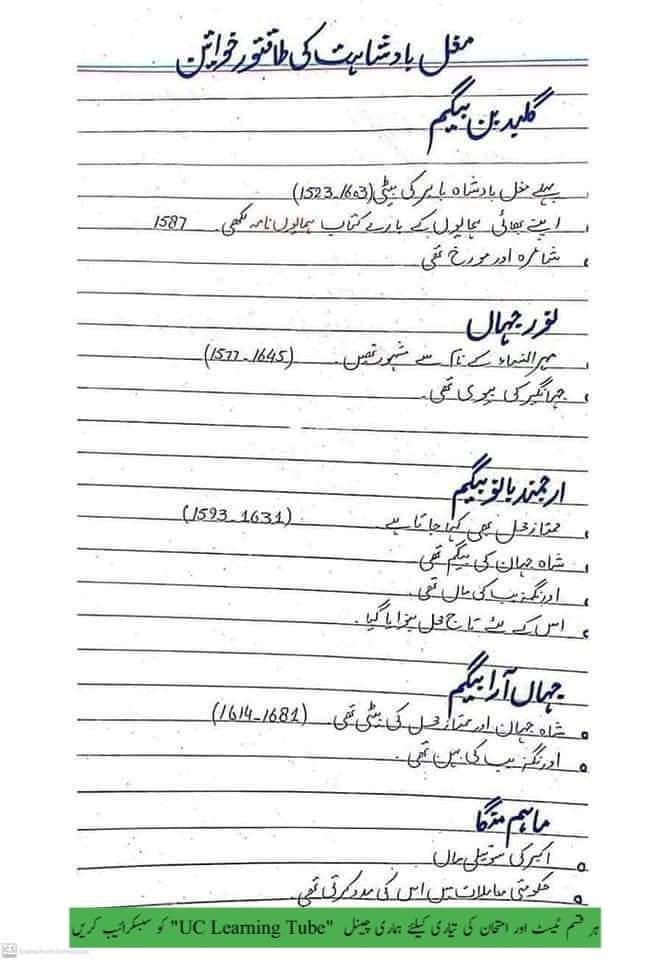 مغل بادشاہت کی طاقتور خواتین
گلبدن بیگم
پہلے مغل بادشاہ بابر کی بیٹی (1523-1603)
اپنے بھائی ہمایوں کے بارے کتاب ہمایوں نامہ لکھی۔ 1587
شاعرہ اور مورخ تھی
نور جہاں
مہرالنساء کے نام سے مشہور تھیں۔ (1577-1645)
جہانگیر کی بیوی تھی۔
ارجمند بانو بیگم
ممتاز محل بھی کہا جاتا ہے۔ (1593-1631)
شاہ جہان کی بیگم تھی
اورنگزیب کی ماں تھی۔
اس کے لئے تاج محل بنوایا گیا۔
جہاں آرا بیگم
شاہ جہان اور ممتاز محل کی بیٹی تھی۔ (1614-1681)
اورنگزیب کی بہن تھی۔
ماہم منگا
اکبر کی سوتیلی ماں
حکومتی معاملات میں اس کی مدد کرتی تھی۔
ہر قسم ٹیسٹ اور امتحان کی تیاری کیلئے ہماری چینل "UC Learning Tube" کو سبسکرائیب کریں
CS